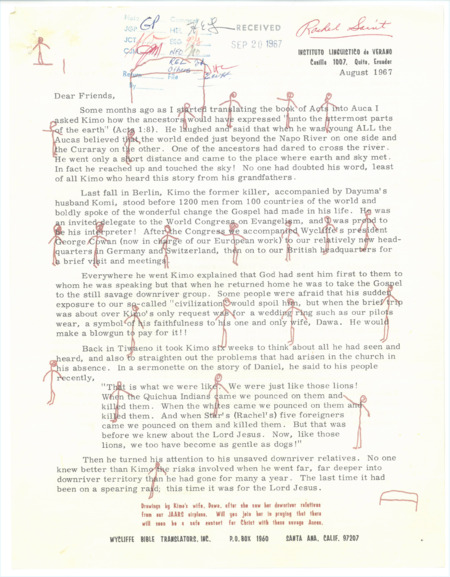 GP
RECEIVED
Rachel Saint
JGP
JCT
SEP 20 1967
INSTITUTO LINGUISTICO de VERANO
Casilla 1007, Quito, Ecuador
August 1967
Dear Friends,
Some months ago as I started translating the book of Acts into Auca I
asked Kimo how the ancestors would have expressed "unto the uttermost parts
of the earth" (Acts 1:8). He laughed and said that when he was young ALL the
Aucas believed that the world ended just beyond the Napo River on one side and
the Curaray on the other. One of the ancestors had dared to cross the river.
He went only a short distance and came to the place where earth and sky met.
In fact he reached up and touched the sky! No one had doubted his word, least
of all Kimo who heard this story from his grandfathers.
Last fall in Berlin, Kimo the former killer, accompanied by Dayuma's
husband Komi, stood before 1200 men from 100 countries of the world and
boldly spoke of the wonderful change the Gospel had made in his life. He was
an invited delegate to the World Congress on Evangelism, and I was proud to
be his interpreter! After the Congress we accompanied Wycliffe's president
George Cowan (now in charge of our European work) to our relatively new head-
quarters in Germany and Switzerland, then on to our British headquarters for
a brief visit and meetings.
Everywhere he went Kimo explained that God had sent him first to them to
whom he was speaking but that when he returned home he was to take the Gospel
to the still savage downriver group. Some people were afraid that his sudden
exposure to our so-called "civilization" would spoil him, but when the brief trip
was about over Kimo's only request was for a wedding ring such as our pilots
wear, a symbol of his faithfulness to his one and only wife, Dawa. He would
make a blowgun to pay for it!!
Back in Tiwaeno it took Kimo six weeks to think about all he had seen and
heard, and also to straighten out the problems that had arisen in the church in
his absence. In a sermonette on the story of Daniel, he said to his people
recently,
"That is what we were like. We were just like those lions!
When the Quichua Indians came we pounced on them and
killed them. When the whites came we pounced on them and
killed them. And when Star's (Rachel's) five foreigners
came we pounced on them and killed them. But that was
before we knew about the Lord Jesus. Now, like those
lions, we too have become as gentle as dogs!"
Then he turned his attention to his unsaved downriver relatives. No one
knew better than Kimo the risks involved when he went far, far deeper into
downriver territory than he had gone for many a year. The last time it had
been on a spearing raid; this time it was for the Lord Jesus.
Drawings by Kimo's wife, Dawa, after she saw her downriver relatives
from our JAARS airplane. Will you join her in praying that there
will soon be a safe contact for Christ with these savage Aucas.
WYCLIFFE BIBLE TRANSLATORS, INC. P.O. BOX 1960 SANTA ANA, CALIF. 97207